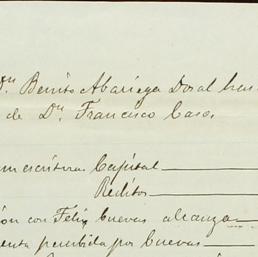 Dn Benito Abariega Dosal
de Dn Francisco Caso.
escritura Capital
Reditos
con Felix Cuevas alcanza
percibida por Cuevas